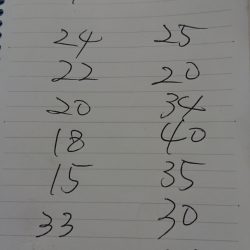 24 25
22 20
20 34
18 40
15 35
33 30